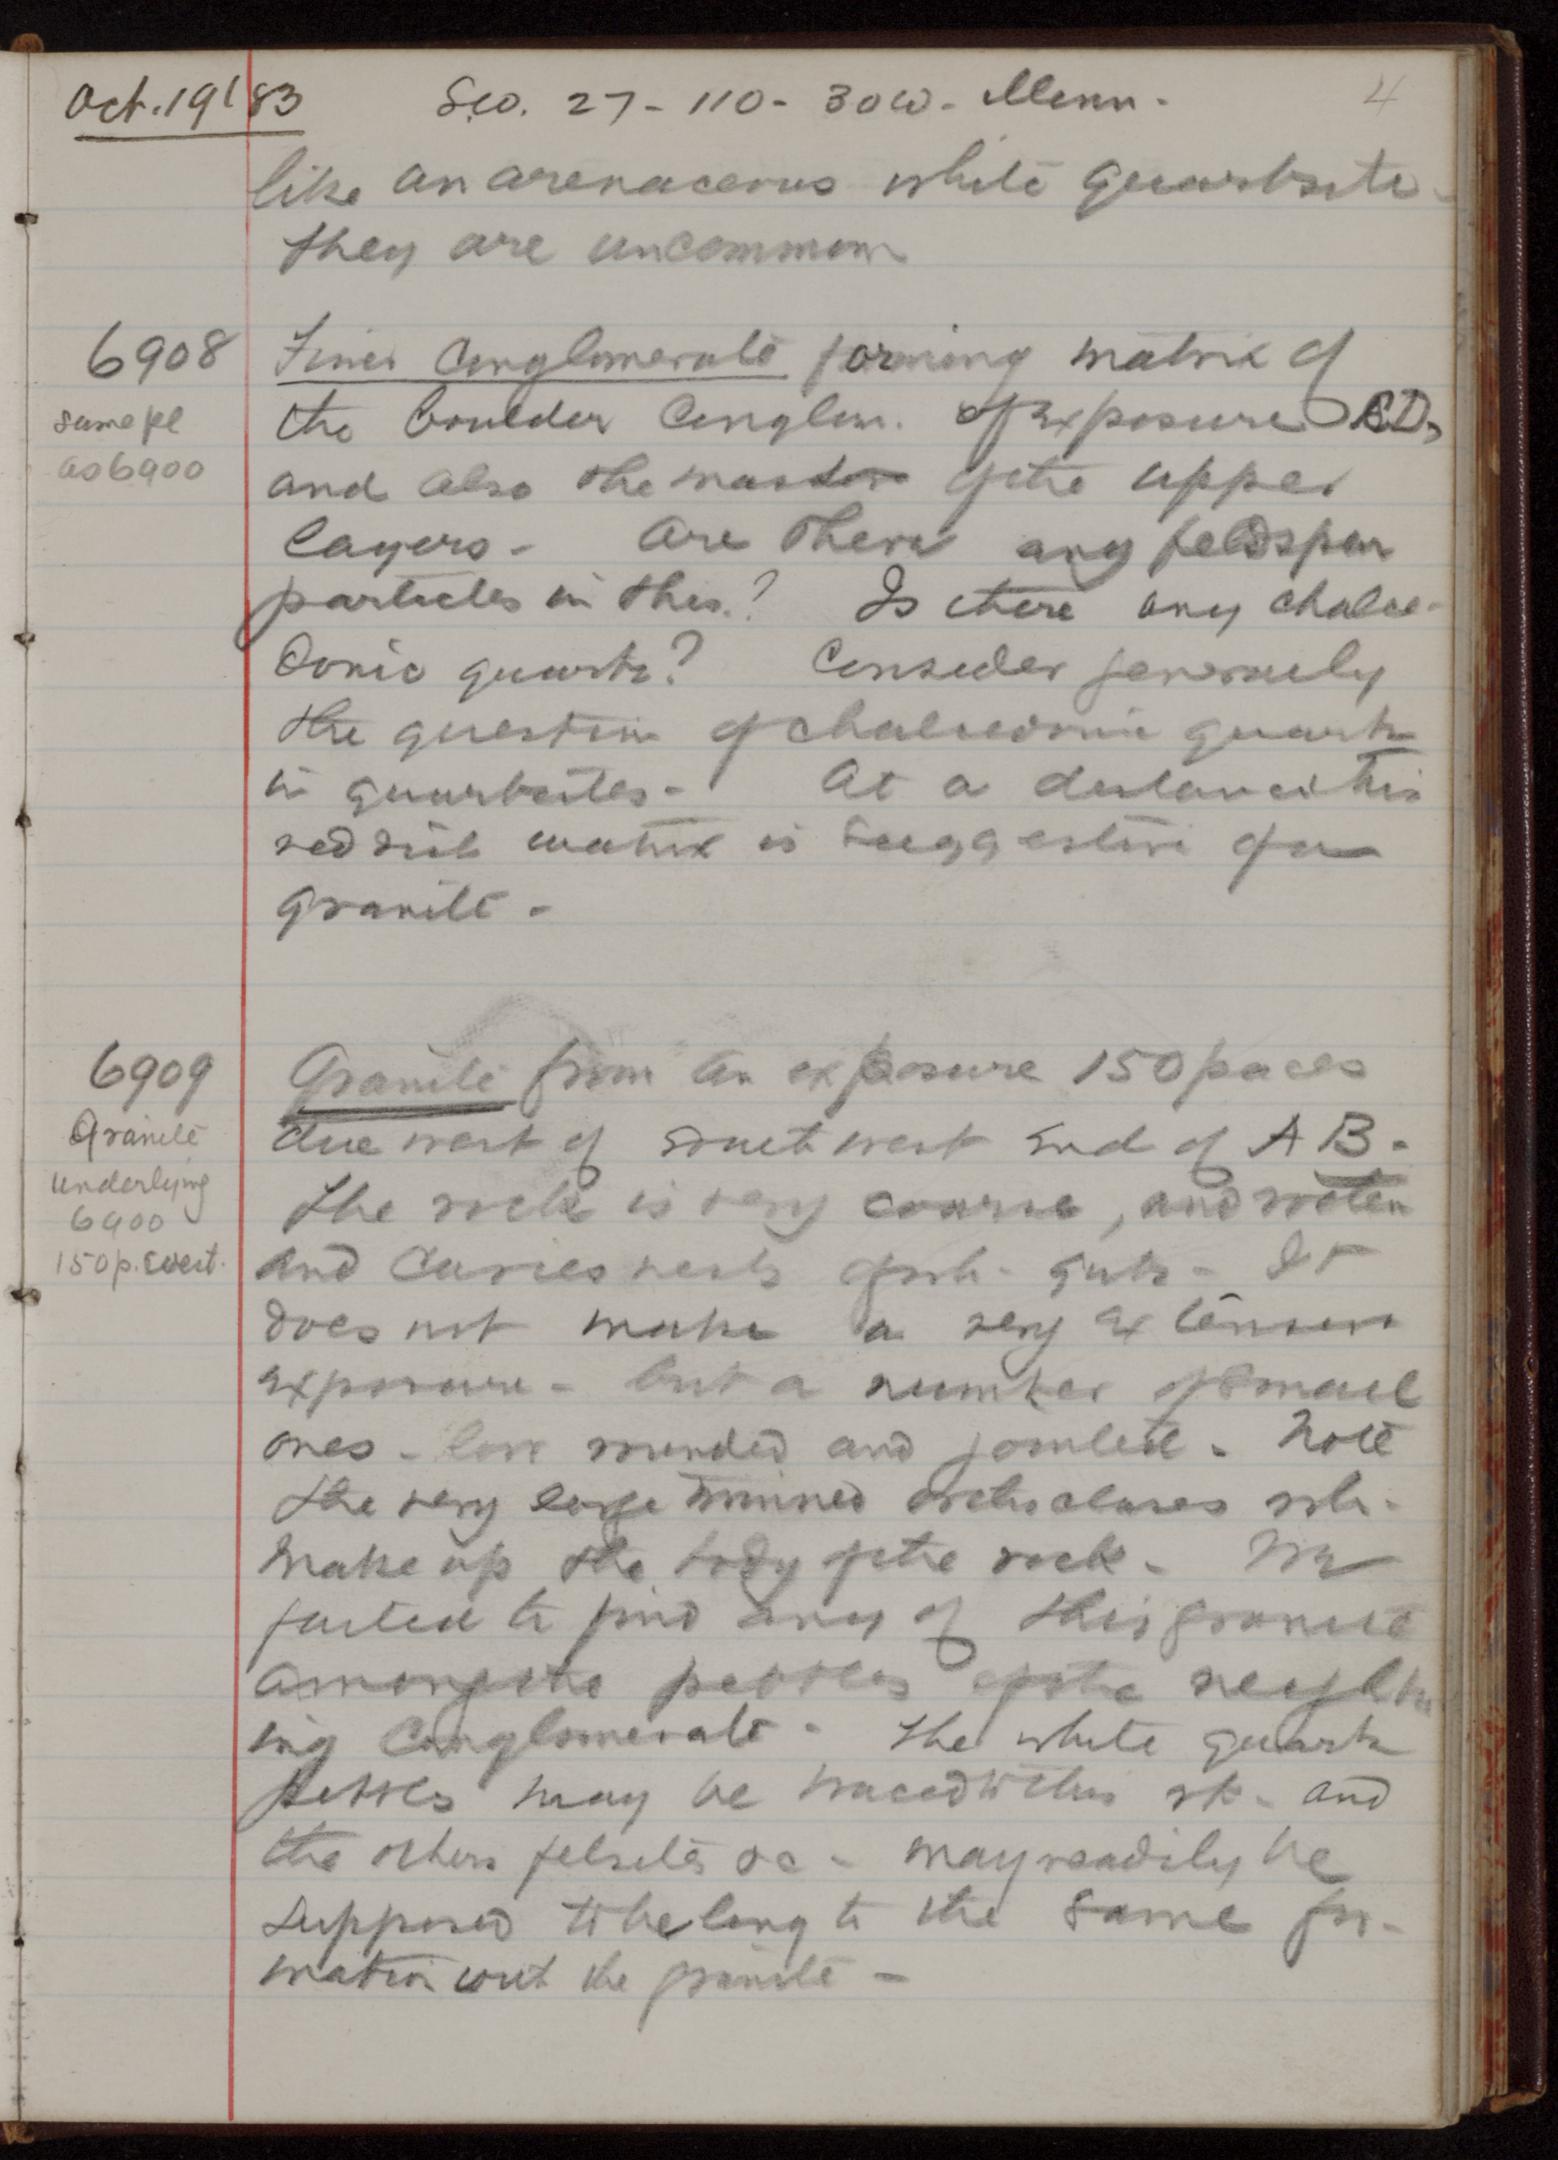 Oct. 19 '83 Sec. 27 - 110 - 30W - Minn. 4
like an arenaceous white quartzite -
they are uncommon
6908 Finer Conglomerate forming matrix of
same pl the boulder Conglom. of exposure CD,
as 6900 and also the of the upper
layers - Are there any feldspar
particles in this.? Is there any chalce-
donic quartz? Consider generally
the question of chalcedonic quartz
in quartzites - At a distance this
reddish matrix is suggestive of a
granite -
6909 Granite from an exposure 150 paces
Granite due west of south west end of AB.
underlying The rock is very coarse, and rotten
6900 and carries nests of wh. qutz - It
150 p. west. does not make a very extensive
exposure - but a number of small
ones - low rounded and jointed - Note
the very large twinned orthoclases wh.
make up the body of the rock - We
failed to find any of this granite
among the pebbles of the neighbor
ing Conglomerate - The white quartz
pebbles may be traced to this rk - and
the others felsites &c - may readily be
supposed to belong to the same for-
mation with the granite -